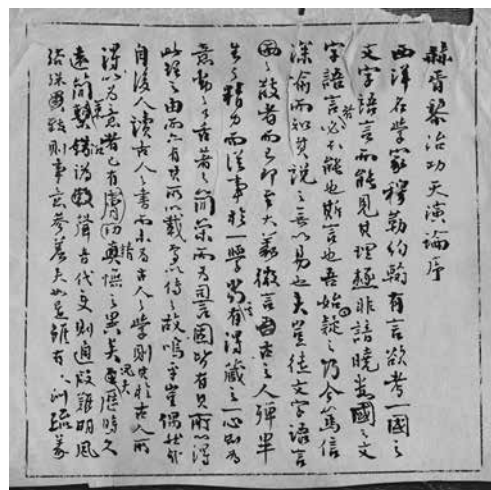 赫胥黎治功天演論序
西洋名學家穆勒約翰有言欲考一國之
文字語言而能見其理極非諳曉數國之文
字語言者必不能也斯言也吾始疑之乃今篤信
深喻而知其說之無以易也夫豈徒文字語言
之散者而已即至大義微言古之人殫畢
生之精力而從事於一學當有得藏之一心則為
意動之口舌著之簡策而為詞固皆有其所以得
此理之由而亦有其所以載焉以傳之故嗚乎豈偶然哉
自後人讀古人之書而未為古人之學則其於古人所
得以為意者已有精憮之異矣況夫歷時久
遠簡牘譌聲音代變則通假難明風
俗殊致則事意參差夫如是雖有訓疏義